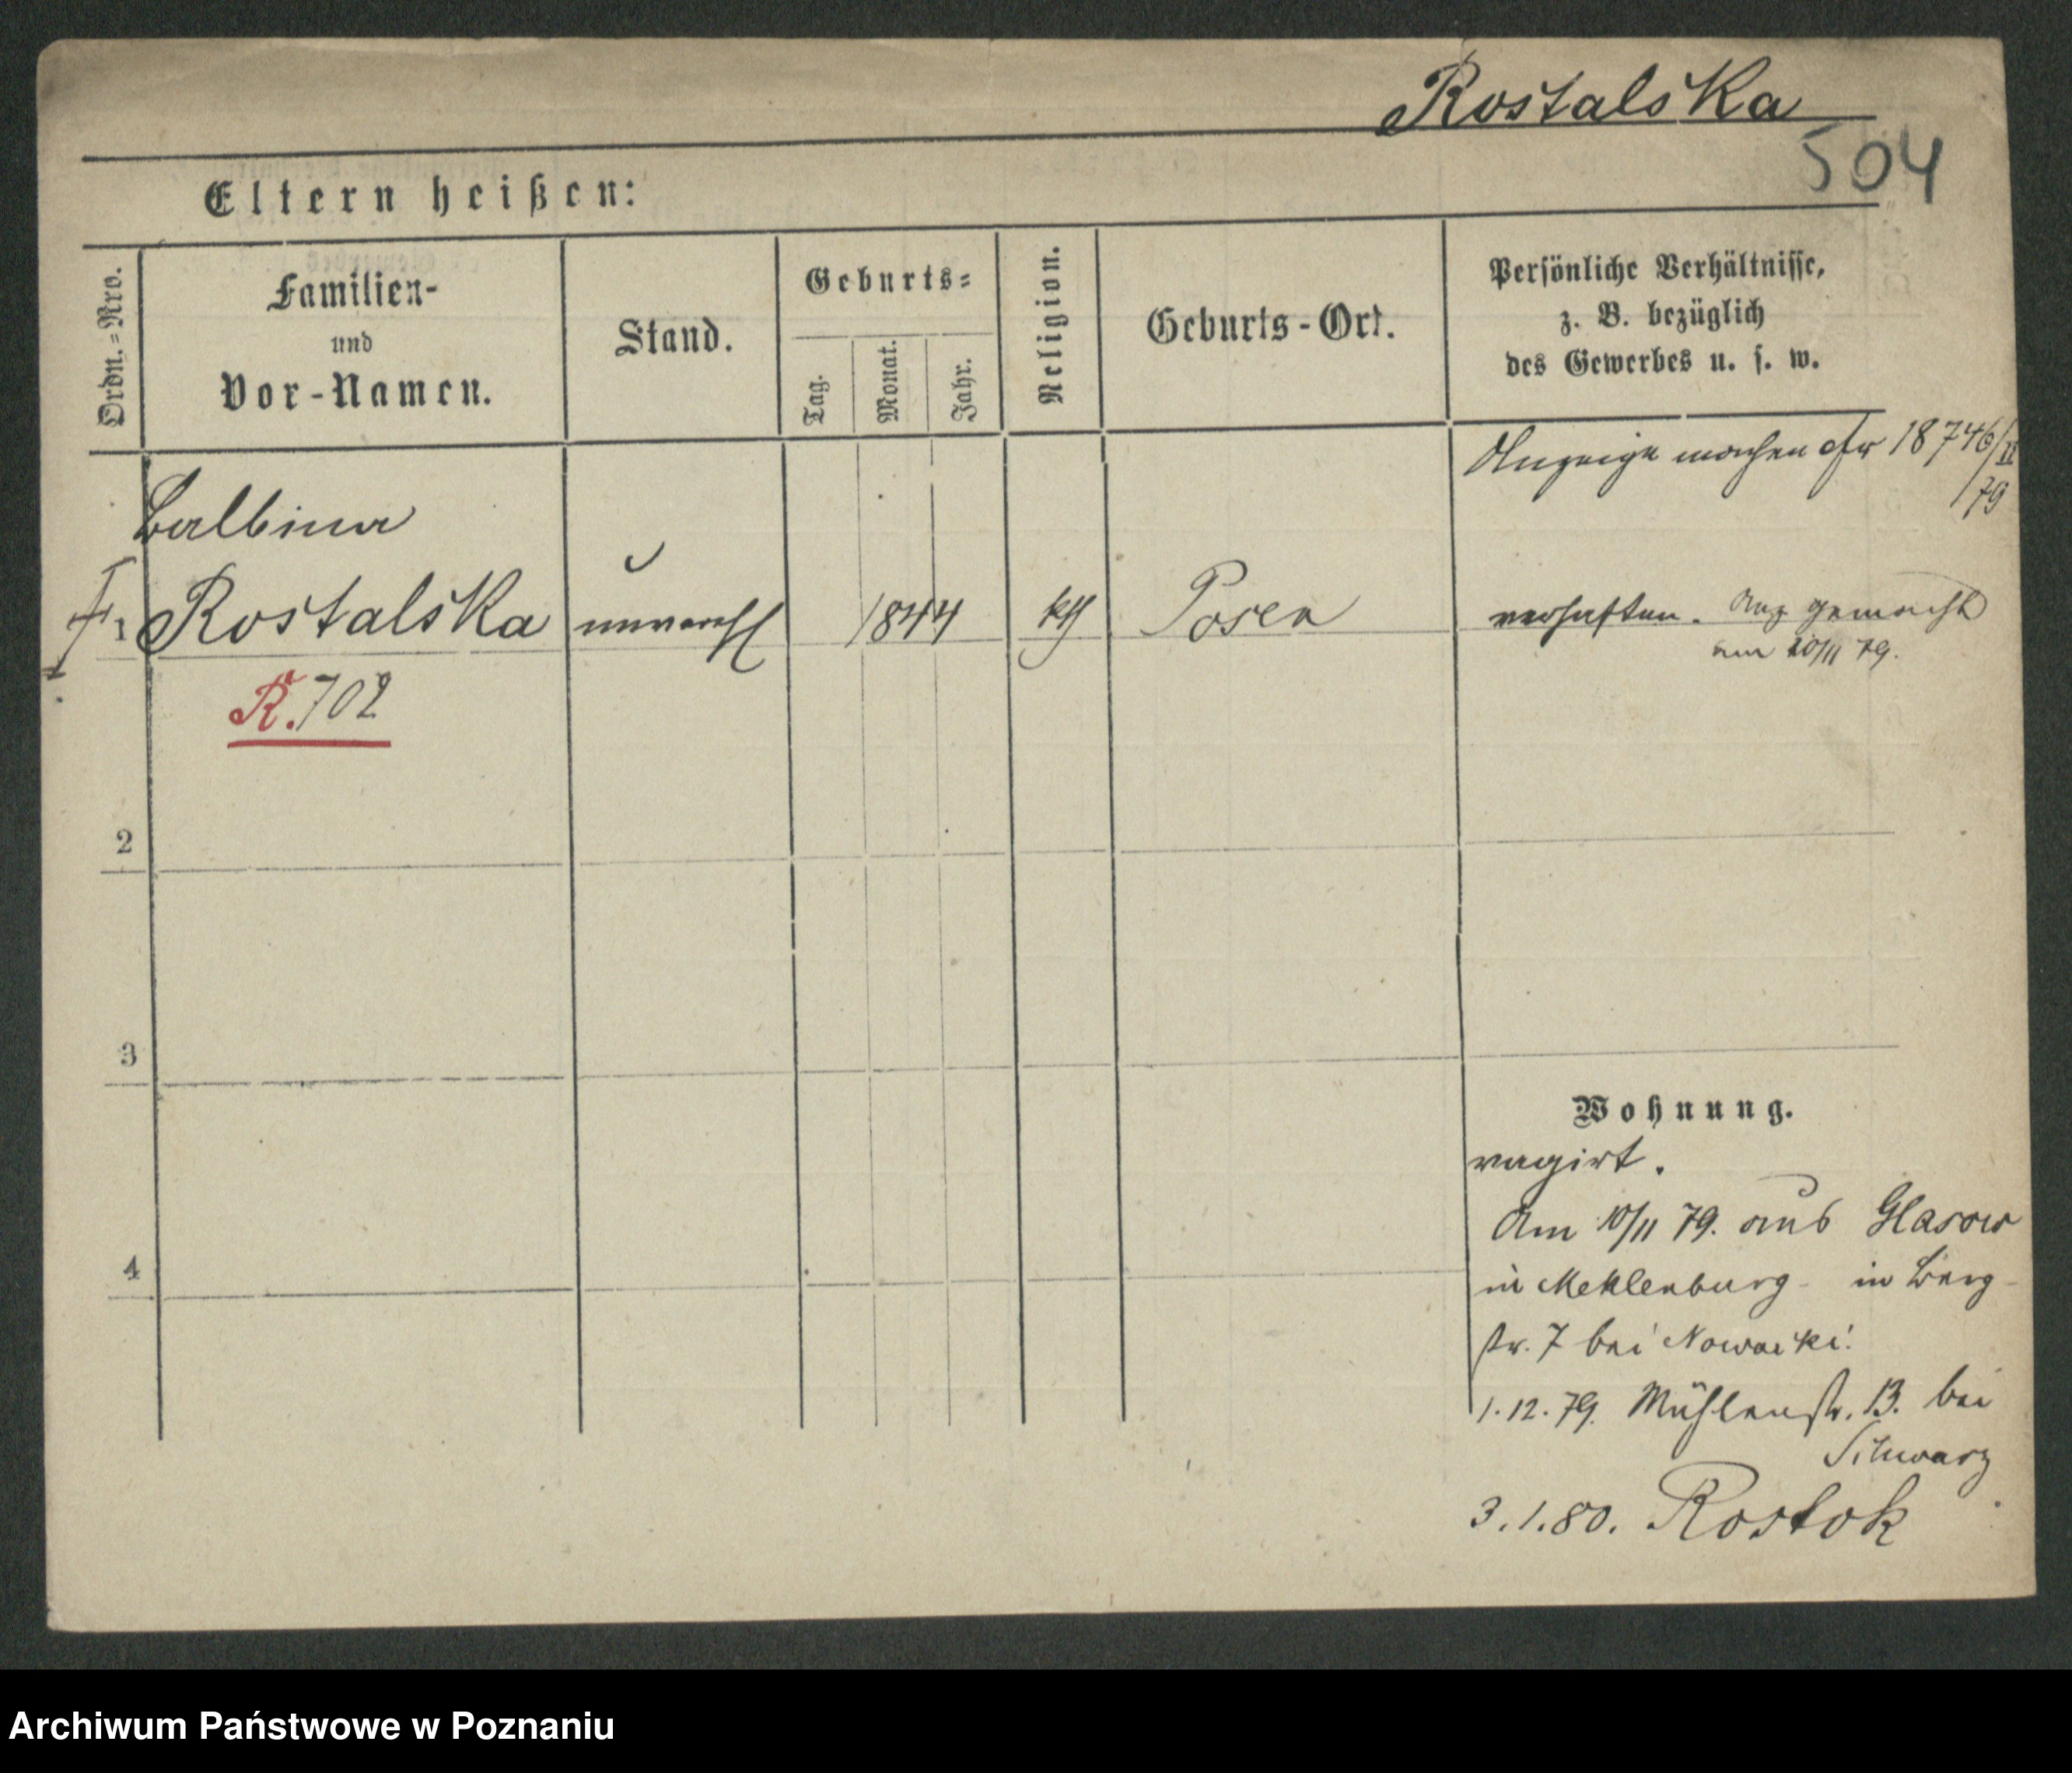 Rostalska
504
Eltern heißen:
Ordn.=Nro.
Familien-
und
Vor-Namen.
Stand.
Geburts=
Tag.
Monat.
Jahr.
Religion.
Geburts-Ort.
Persönliche Verhältnisse,
z. B. bezüglich
des Gewerbes u. s. w.
Anzeige machen cfr 18746/II
/79
Balbina
1 Rostalska unverehl 1844 kth Posen verhaften. Anz gemacht
am 10/11 79.
R. 702
2
3
4
Wohnung.
vagirt.
Am 10/11 79. aus Glasow
in Meklenburg - in Berg-
str. 7 bei Nowacki.
1.12.79. Mühlenstr. 13. bei
Schwarz
3.1.80. Rostok
Archiwum Państwowe w Poznaniu